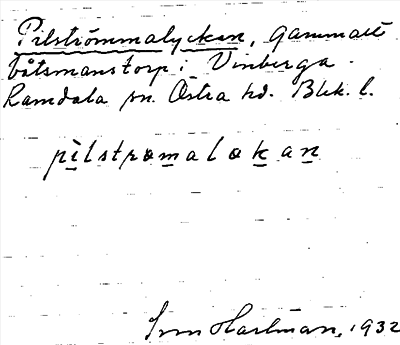 Pilströmmalyckan, gammalt
båtsmanstorp i Vinberga.
Ramdala sn. Östra hd. Blek. l.
pilstrømaløkan
Sven Hartman, 1932